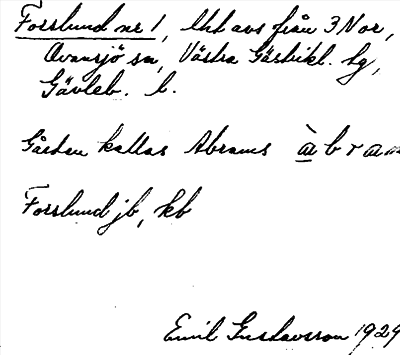 Forslund nr 1, Utd avs från 3 Nor,
Ovansjö sn, Västra Gästrikl. hg,
Gävleb. l.
Gården kallas Abrams àbram
Forslund jb, kb
Emil Gustavsson 1929